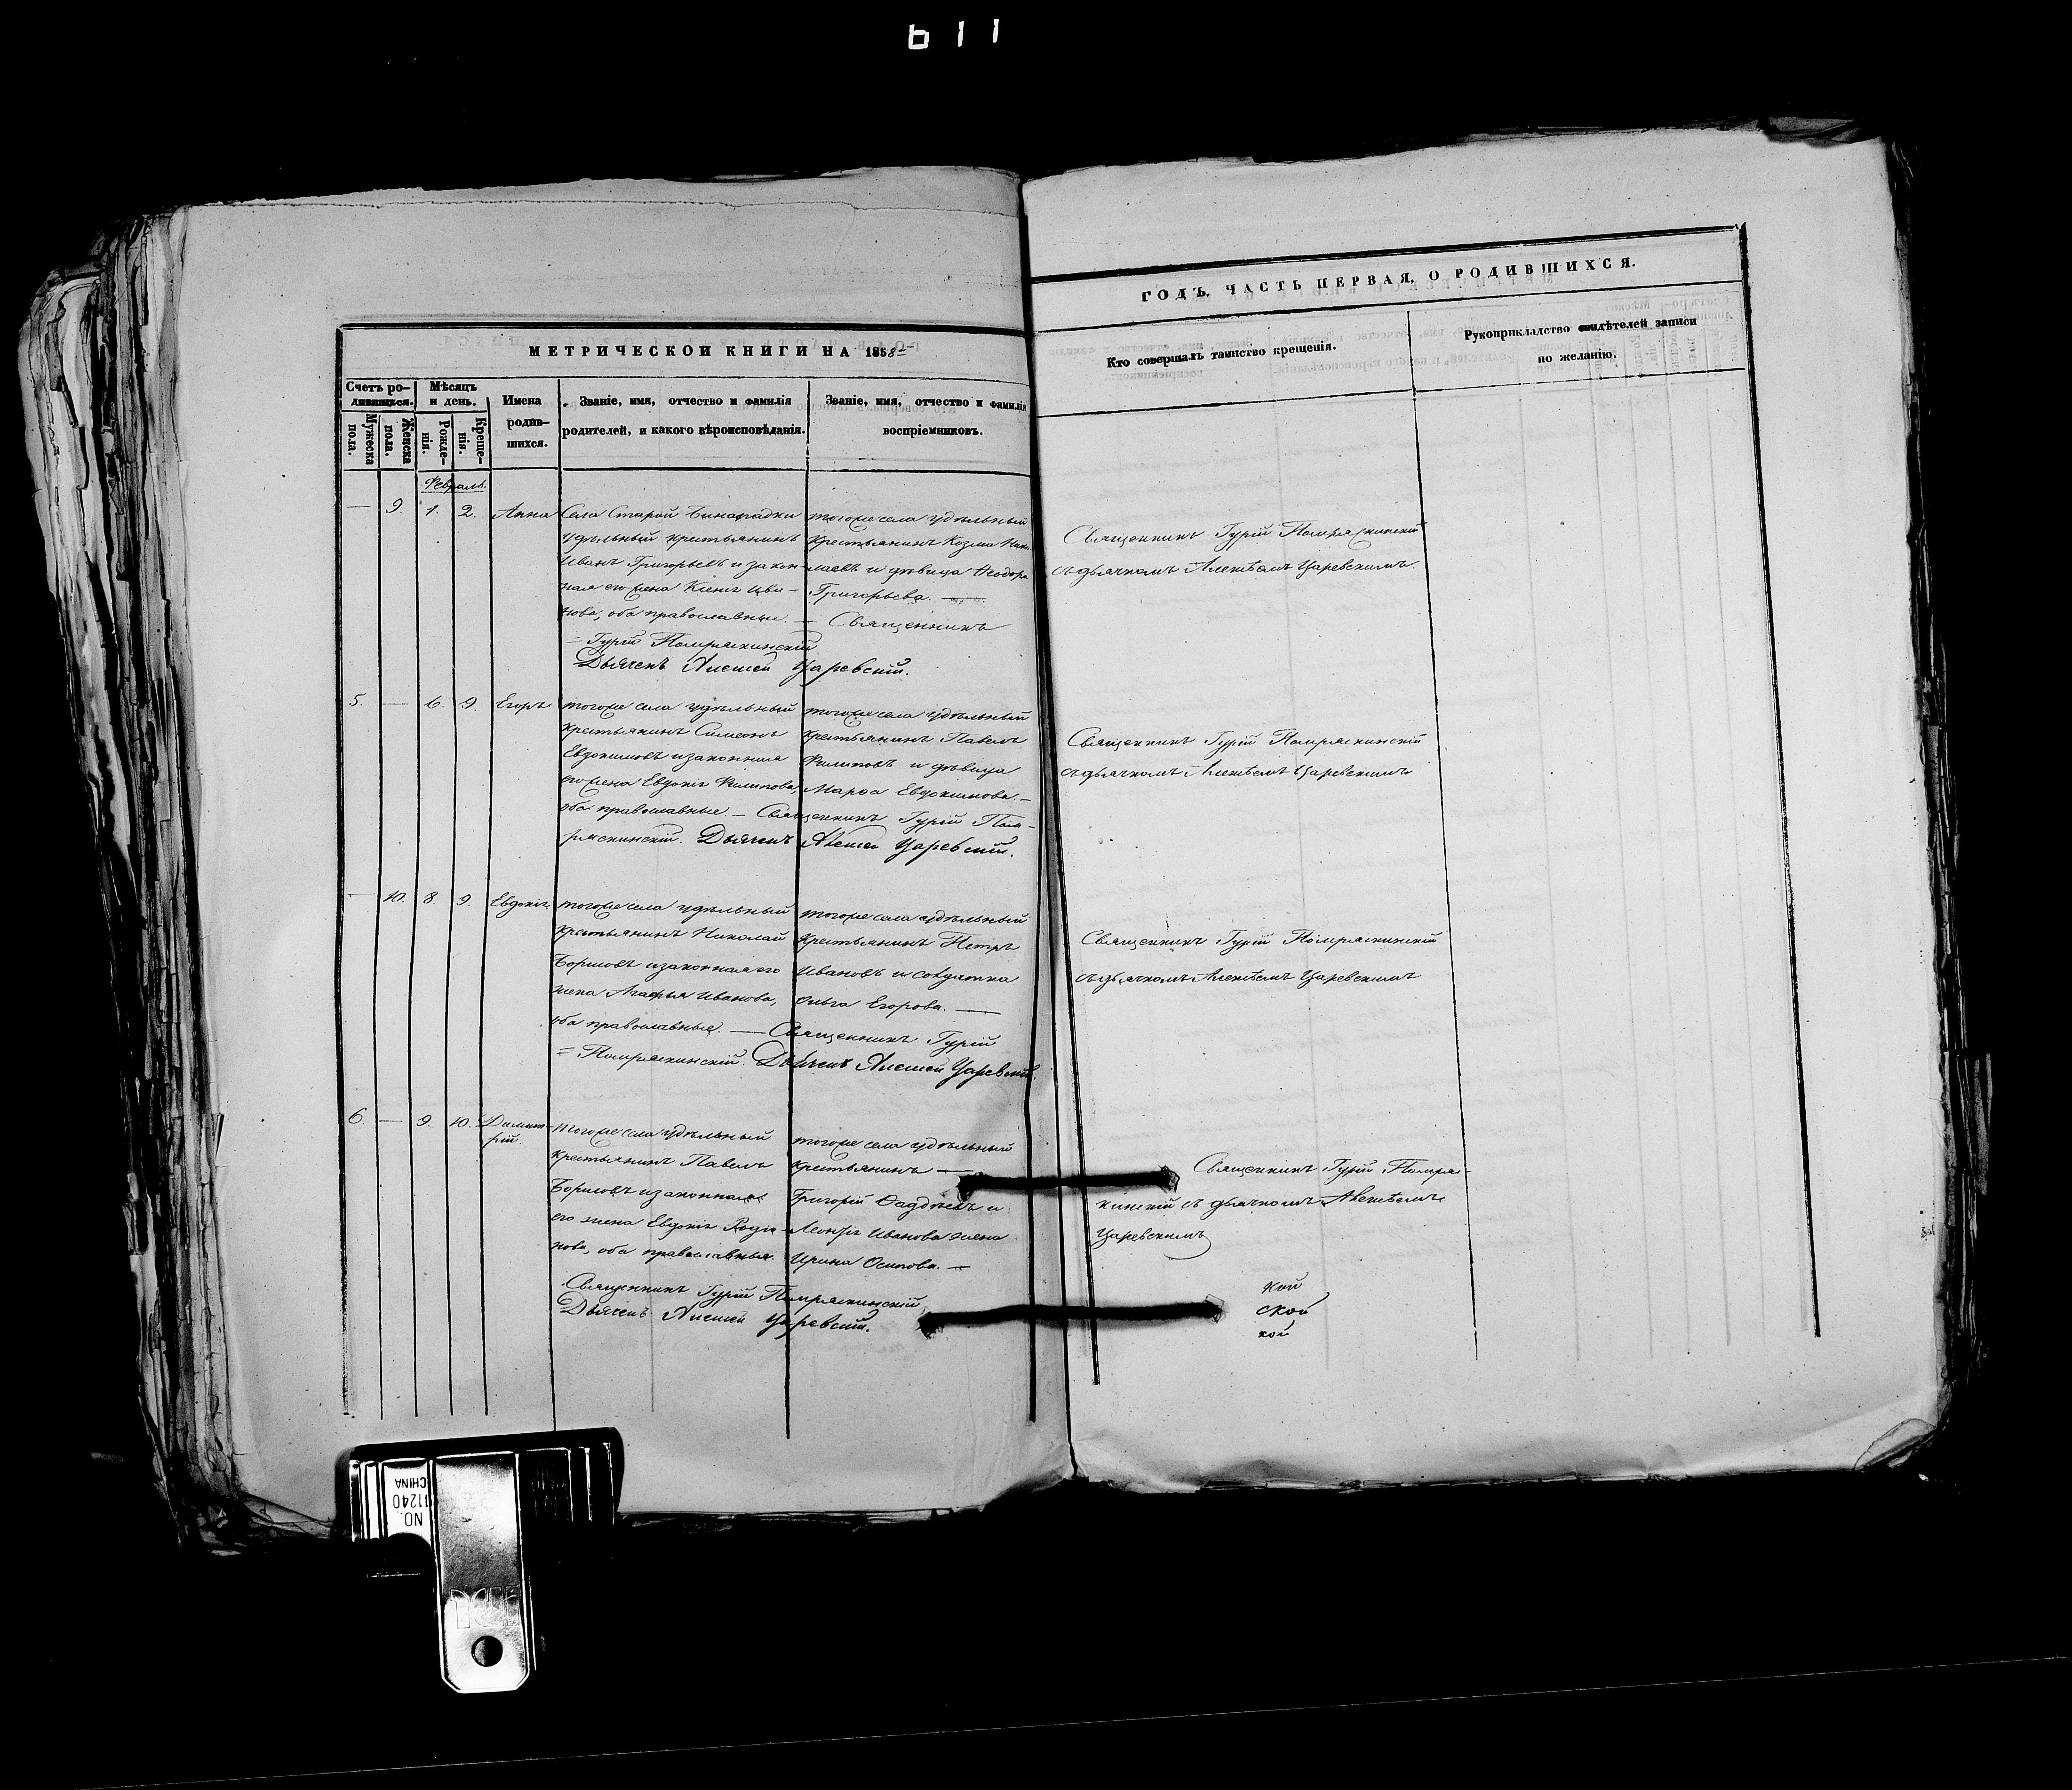 611
МЕТРИЧЕСКОЙ КНИГИ НА 1858
Счетъ ро-
дившихся.
Мѣсяцъ
и день.
Имена
родив-
шихся.
Званіе, имя, отчество и фамилія
родителей, и какого вѣроисповѣданія.
Званіе, имя, отчество и фамилія
воспріемниковъ.
Мужеска
пола.
Женска
пола.
Рожде-
нія.
Креще-
нія.
Февраль.
— 9. 1. 2. Анна
Села Старой Бинарадки
удѣльный крестьянинъ
Иванъ Григорьевъ и закон-
ная его жена Ксенія
нова, оба православные. — Священникъ
= Гурій Помряскинскій
Дьячекъ Алексей Царевскій.
тогоже села удѣльный
крестьянинъ Козма Нико-
лаевъ и дѣвица Ѳеодора
Григорьева. —
5. — 6. 9. Егоръ
тогоже села удѣльный
крестьянинъ Симеонъ
Евдокимовъ и законная
его жена Евдокія Филипова,
оба православные. — Священникъ Гурій Пом-
ряскинскій. Дьячекъ Алексей Царевскій.
тогоже села удѣльный
крестьянинъ Павелъ
Филиповъ и дѣвица
Марѳа Евдокимова. —
— 10. 8. 9. Евдокія.
тогоже села удѣльный
крестьянинъ Николай
Борисовъ и законная его
жена Агафья Иванова,
оба православные. — Священникъ Гурій
= Помряскинскій. Дьячекъ Алексей Царевскій.
тогоже села удѣльный
крестьянинъ Петръ
Ивановъ и солдатка
Ольга Егорова. —
6. — 9. 10. Димит-
рій.
тогоже села удѣльный
крестьянинъ Павелъ
Борисовъ и законная
его жена Евдокія Родіо-
нова, оба православные.
Священникъ Гурій Помряскинскій
Дьячекъ Алексей Царевскій.
тогоже села удѣльный
крестьянинъ —
Григорій Ѳаддѣевъ и
Леонтія Иванова жена
Ирина Осипова. —
ГОДЪ, ЧАСТЬ ПЕРВАЯ, О РОДИВШИХСЯ.
Кто совершалъ таинство крещенія.
Рукоприкладство свидѣтелей записи
по желанію.
Священникъ Гурій Помряскинскій
съ дьячкомъ Алексѣемъ Царевскимъ.
Священникъ Гурій Помряскинскій
съ дьячкомъ Алексѣемъ Царевскимъ
Священникъ Гурій Помряскинскій
съ дьячкомъ Алексѣемъ Царевскимъ
Священникъ Гурій Помряс-
кинскій съ дьячкомъ Алексѣемъ
Царевскимъ
кой
ской
кой
NO.
11240
CHINA